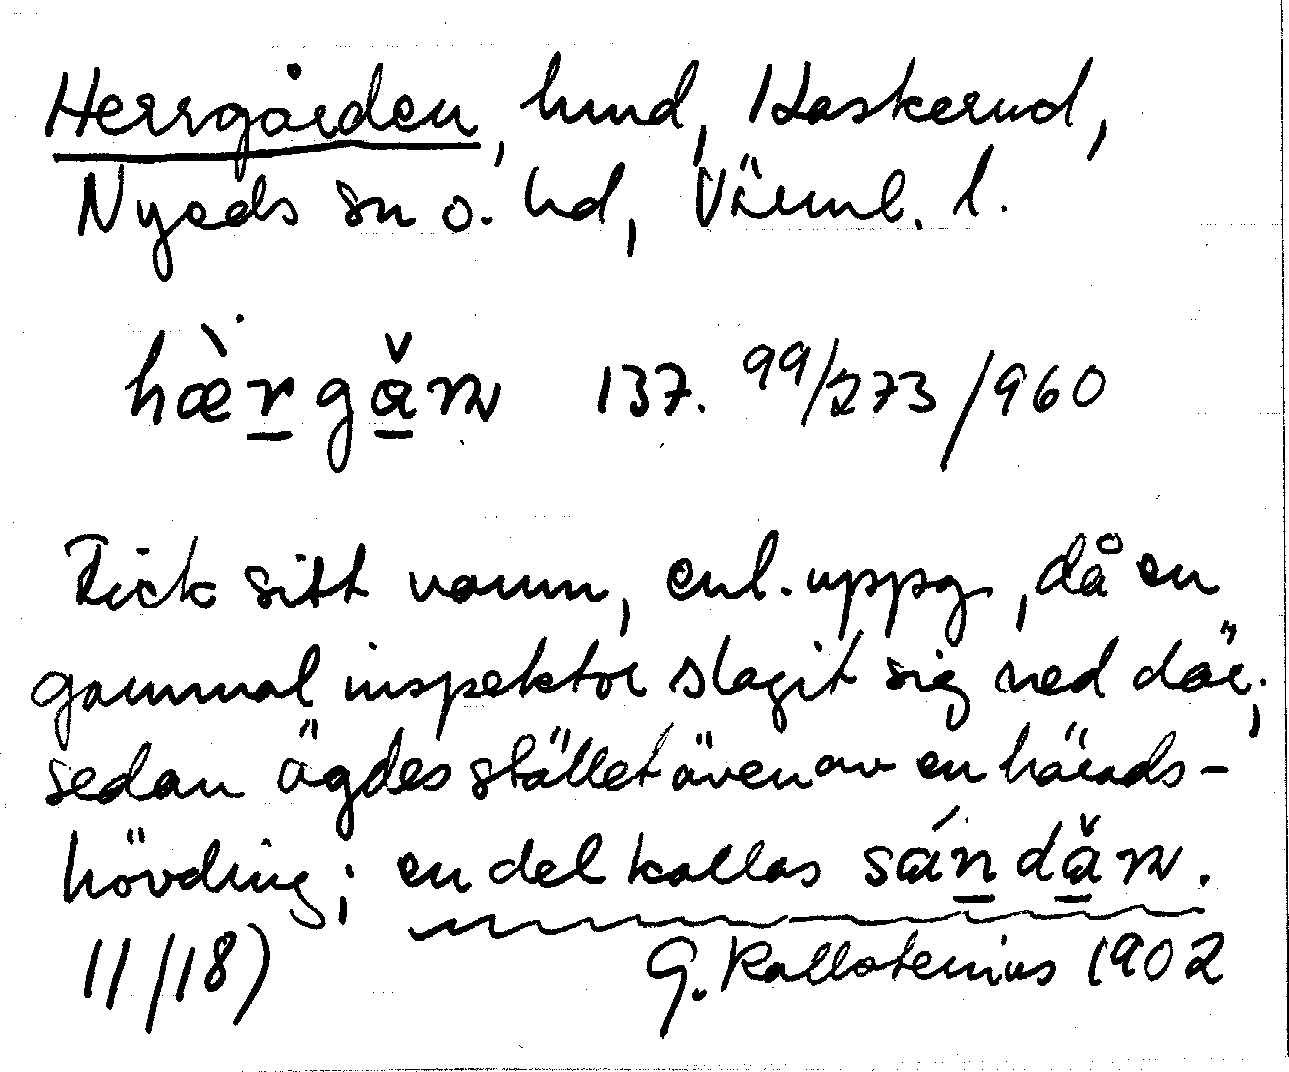 Herrgården, hmd, Haskerud,
Nyeds sn o. hd, Värml. l.
hæ̀r̲gǎ̲ɳ 137. 99/273/960
Fick sitt namn, enl. uppg., då en
gammal inspektor slagit sig ned där;
sedan ägdes stället även av en härads-
hövding; en del kallas sán̲dǎ̲ɳ.
11/18) G. Kallstenius 1902